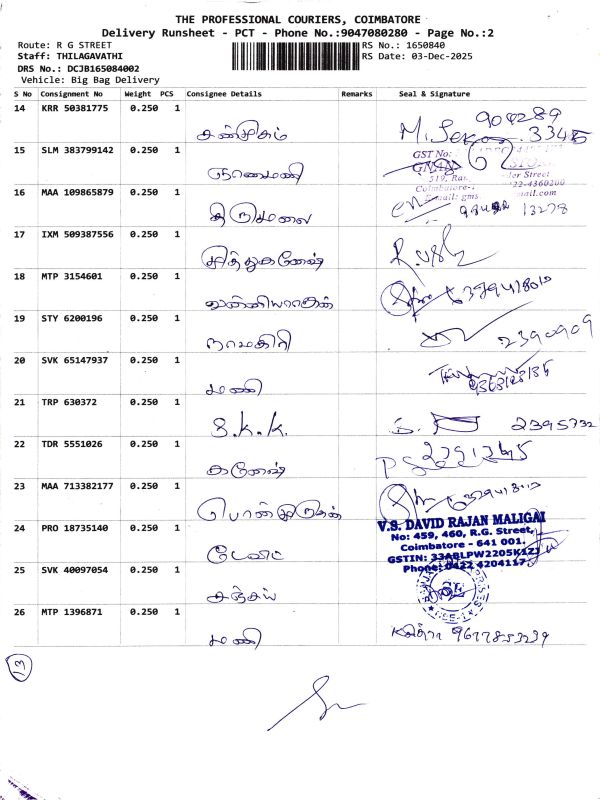 THE PROFESSIONAL COURIERS, COIMBATORE
Delivery Runsheet - PCT - Phone No.:9047080280 - Page No.:2
Route: R G STREET
Staff: THILAGAVATHI
DRS No.: DCJB165084002
Vehicle: Big Bag Delivery
RS No.: 1650840
RS Date: 03-Dec-2025
S No Consignment No Weight PCS Consignee Details Remarks Seal & Signature
14 KRR 50381775 0.250 1
சண்முகம்
15 SLM 383799142 0.250 1
ஞானமணி
GST No:
Coimbatore-
16 MAA 109865879 0.250 1
திருமலை
13278
17 IXM 509387556 0.250 1
18 MTP 3154601 0.250 1
6379418012
19 STY 6200196 0.250 1
நாமகிரி
2390909
20 SVK 65147937 0.250 1
மணி
21 TRP 630372 0.250 1
S.K.K.
2395732
22 TDR 5551026 0.250 1
கணேஷ்
23 MAA 713382177 0.250 1
பொன்முருகன்
24 PRO 18735140 0.250 1
டேவிட்
V.S. DAVID RAJAN MALIGAI
No: 459, 460, R.G. Street,
Coimbatore - 641 001.
GSTIN: 33ABLPW2205K1Z1
Phone: 0422 4204117
25 SVK 40097054 0.250 1
சஞ்சய்
26 MTP 1396871 0.250 1
மணி
13